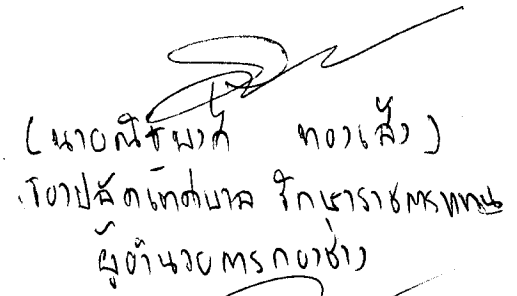 (นายณัฐพงศ์ ทองเส้ง)
รองปลัดเทศบาล รักษาราชการแทน
ผู้อำนวยการกองช่าง